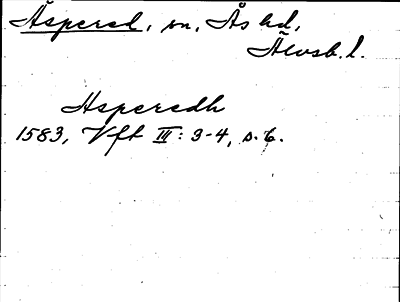 Åspered, sn, Ås hd,
Älvsb. l.
Asperedh
1583, Vft III: 3-4, s. 6.